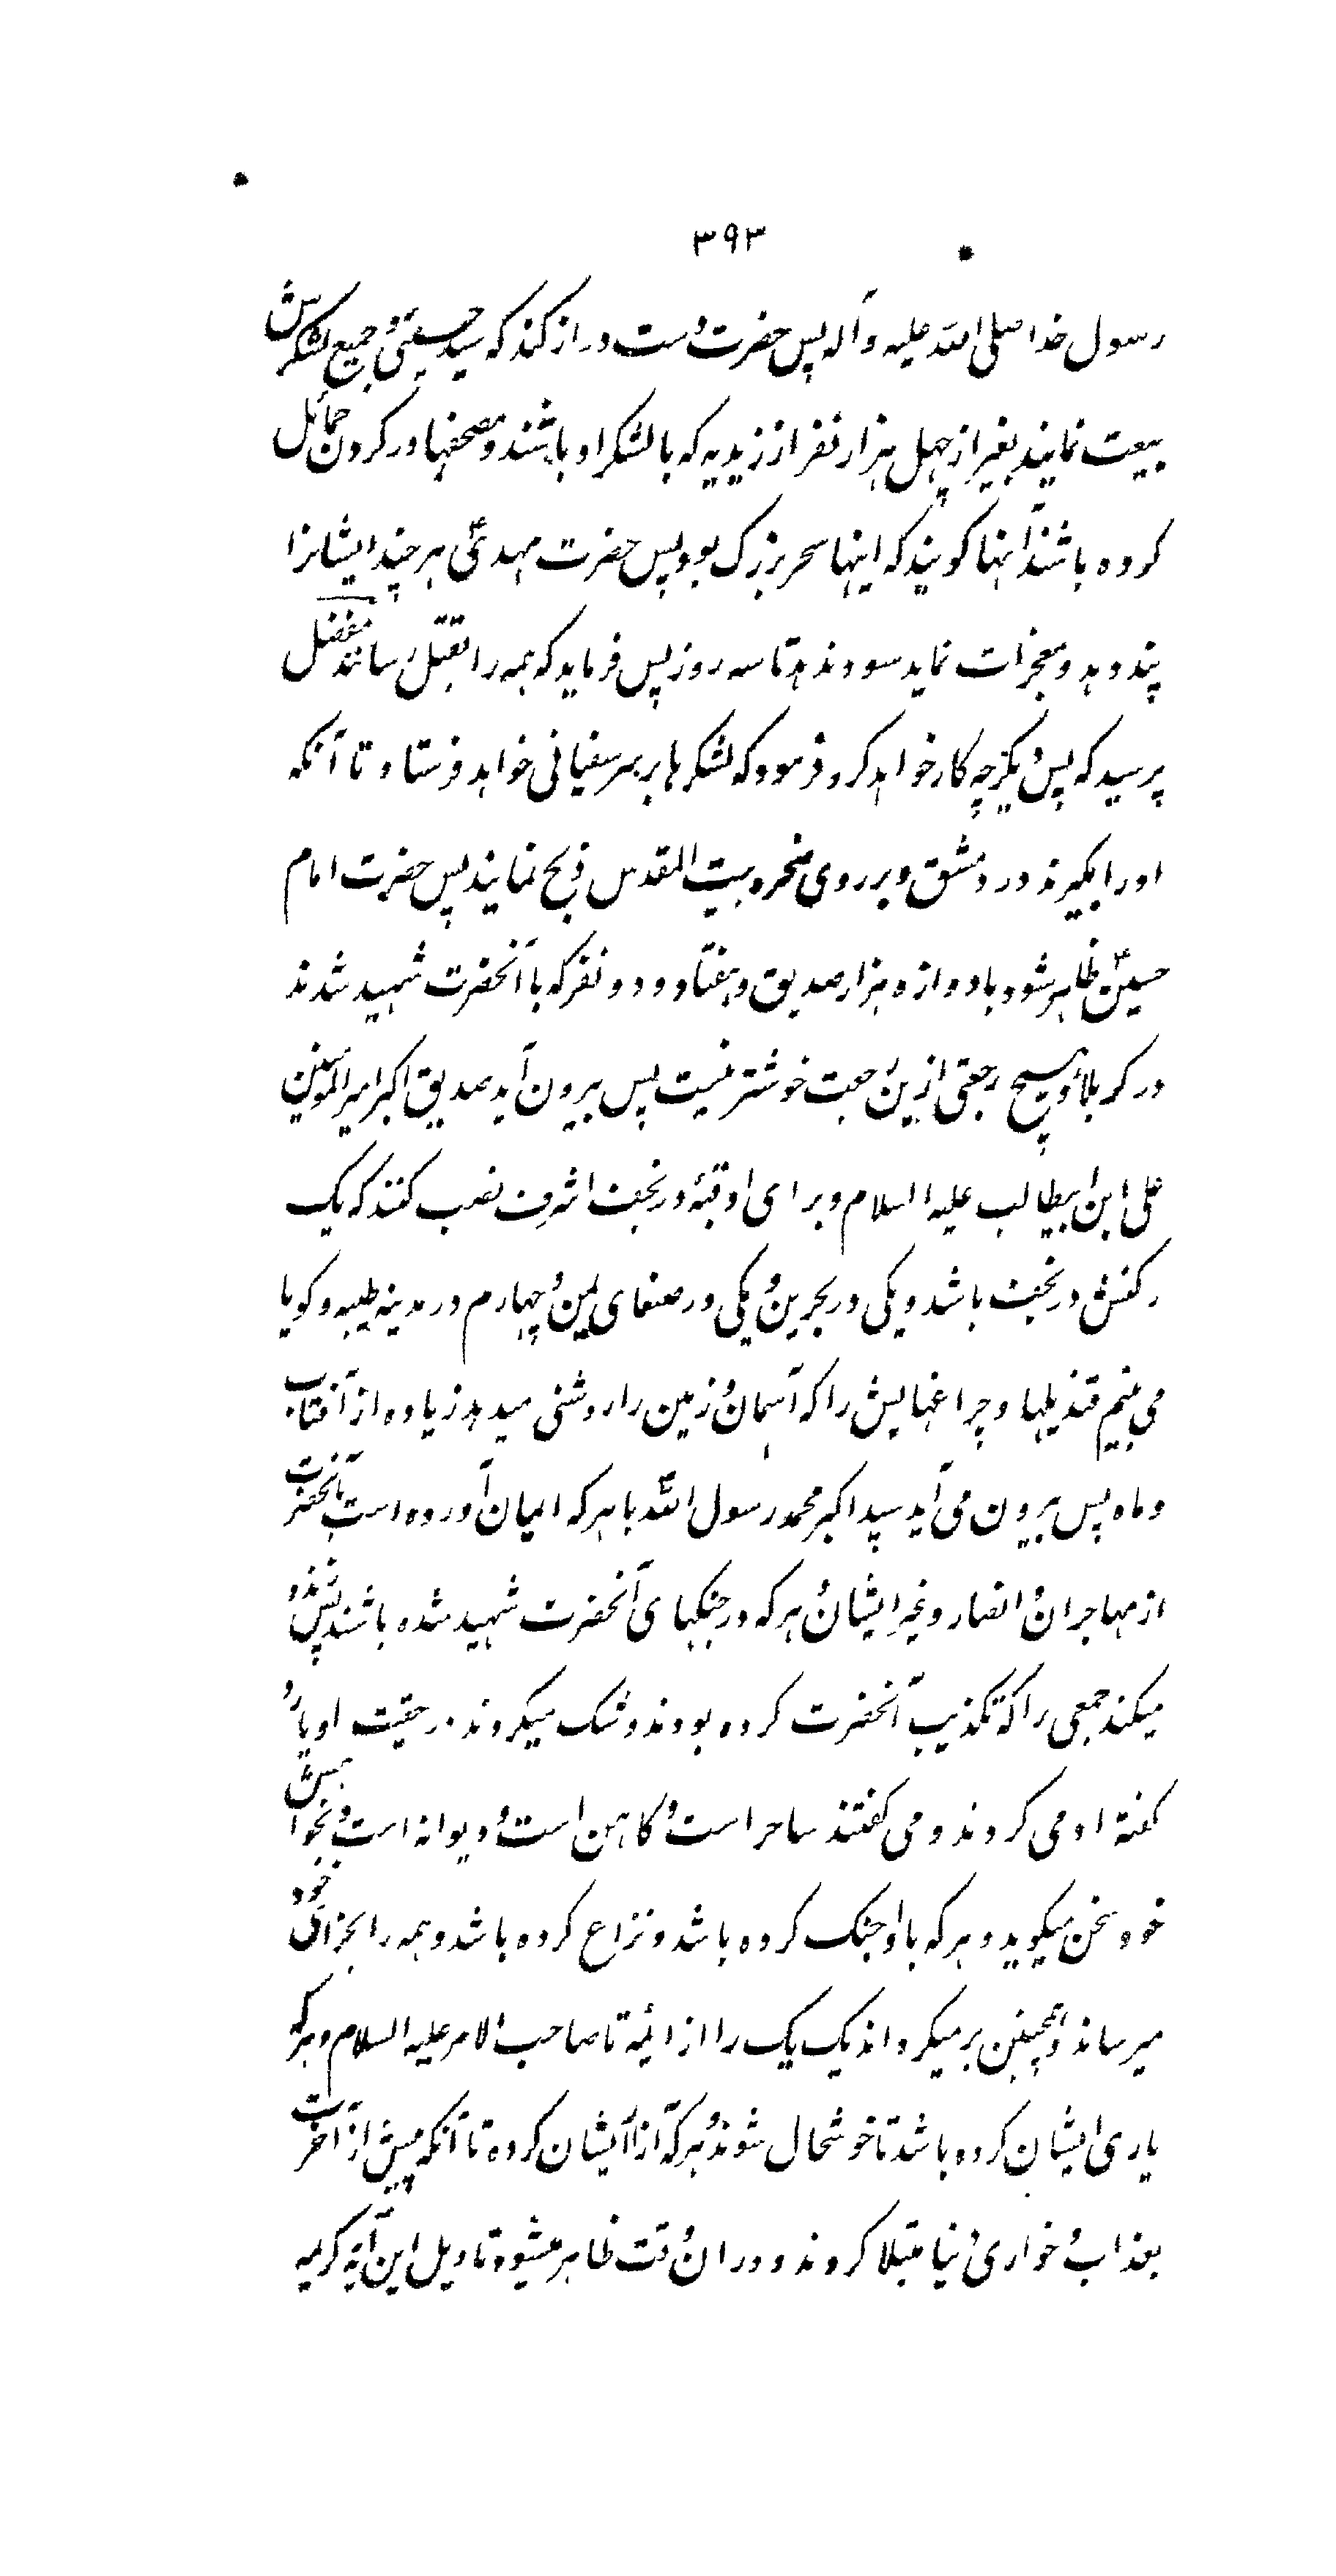 ۳۹۳
رسول خدا صلی الله علیه و آله پس حضرت دست دراز کند که سید حسنی و جمیع لشکرش
بیعت نمایند بغیر از چهل هزار نفر از زیدیه که با لشکر او باشند و مصحفها در کردن حمائل
کرده باشند آنها کویند که اینها سحر بزرک بود پس حضرت مهدی ع هر چند ایشانرا
پند دهد و معجزات نماید سود ندهد تا سه روز پس فرماید که همه را بقتل رسانند مفضل
پرسید که پس دیگر چه کار خواهد کرد فرمود که لشکرها بر سر سفیانی خواهد فرستاد تا آنکه
او را بکیرند در دمشق و بر روی صخره بیت المقدس ذبح نمایند پس حضرت امام
حسین ع ظاهر شود با دوازده هزار صدیق و هفتاد و دو نفر که با آنحضرت شهید شدند
در کربلا و هیچ رجعتی ازین رجعت خوشتر نیست پس بیرون آید صدیق اکبر امیرالمؤمنین
علی ابن ابیطالب علیه السلام و برای او قبهٔ در نجف اشرف نصب کنند که یک
رکنش در نجف باشد و یکی در بحرین و یکی در صنعای یمن و چهارم در مدینه طیبه و کویا
می بینم قندیلها و چراغهایش را که آسمان و زمین را روشنی میدهد زیاده از آفتاب
و ماه پس بیرون می آید سید اکبر محمد رسول الله ص با هر که ایمان آورده است بآنحضرت
از مهاجران و انصار و غیر ایشان و هر که در جنکهای آنحضرت شهید شده باشند پس زنده
میکند جمعی را که تکذیب آنحضرت کرده بودند و شک میکردند در حقیت او یا رد
کفتهٔ او می کردند و می کفتند ساحر است و کاهن است و دیوانه است و بخواهش
خود سخن میکوید و هر که با او جنک کرده باشد و نزاع کرده باشد و همه را بجزای خود
میرساند و همچنین برمیکرداند یک یک را از ائمه تا صاحب الامر علیه السلام و هر که
یاری ایشان کرده باشد تا خوشحال شوند و هر که آزار ایشان کرده تا آنکه پیش از آخرت
بعذاب و خواری دنیا مبتلا کردند و در ان وقت ظاهر میشود تاویل این آیه کریمه